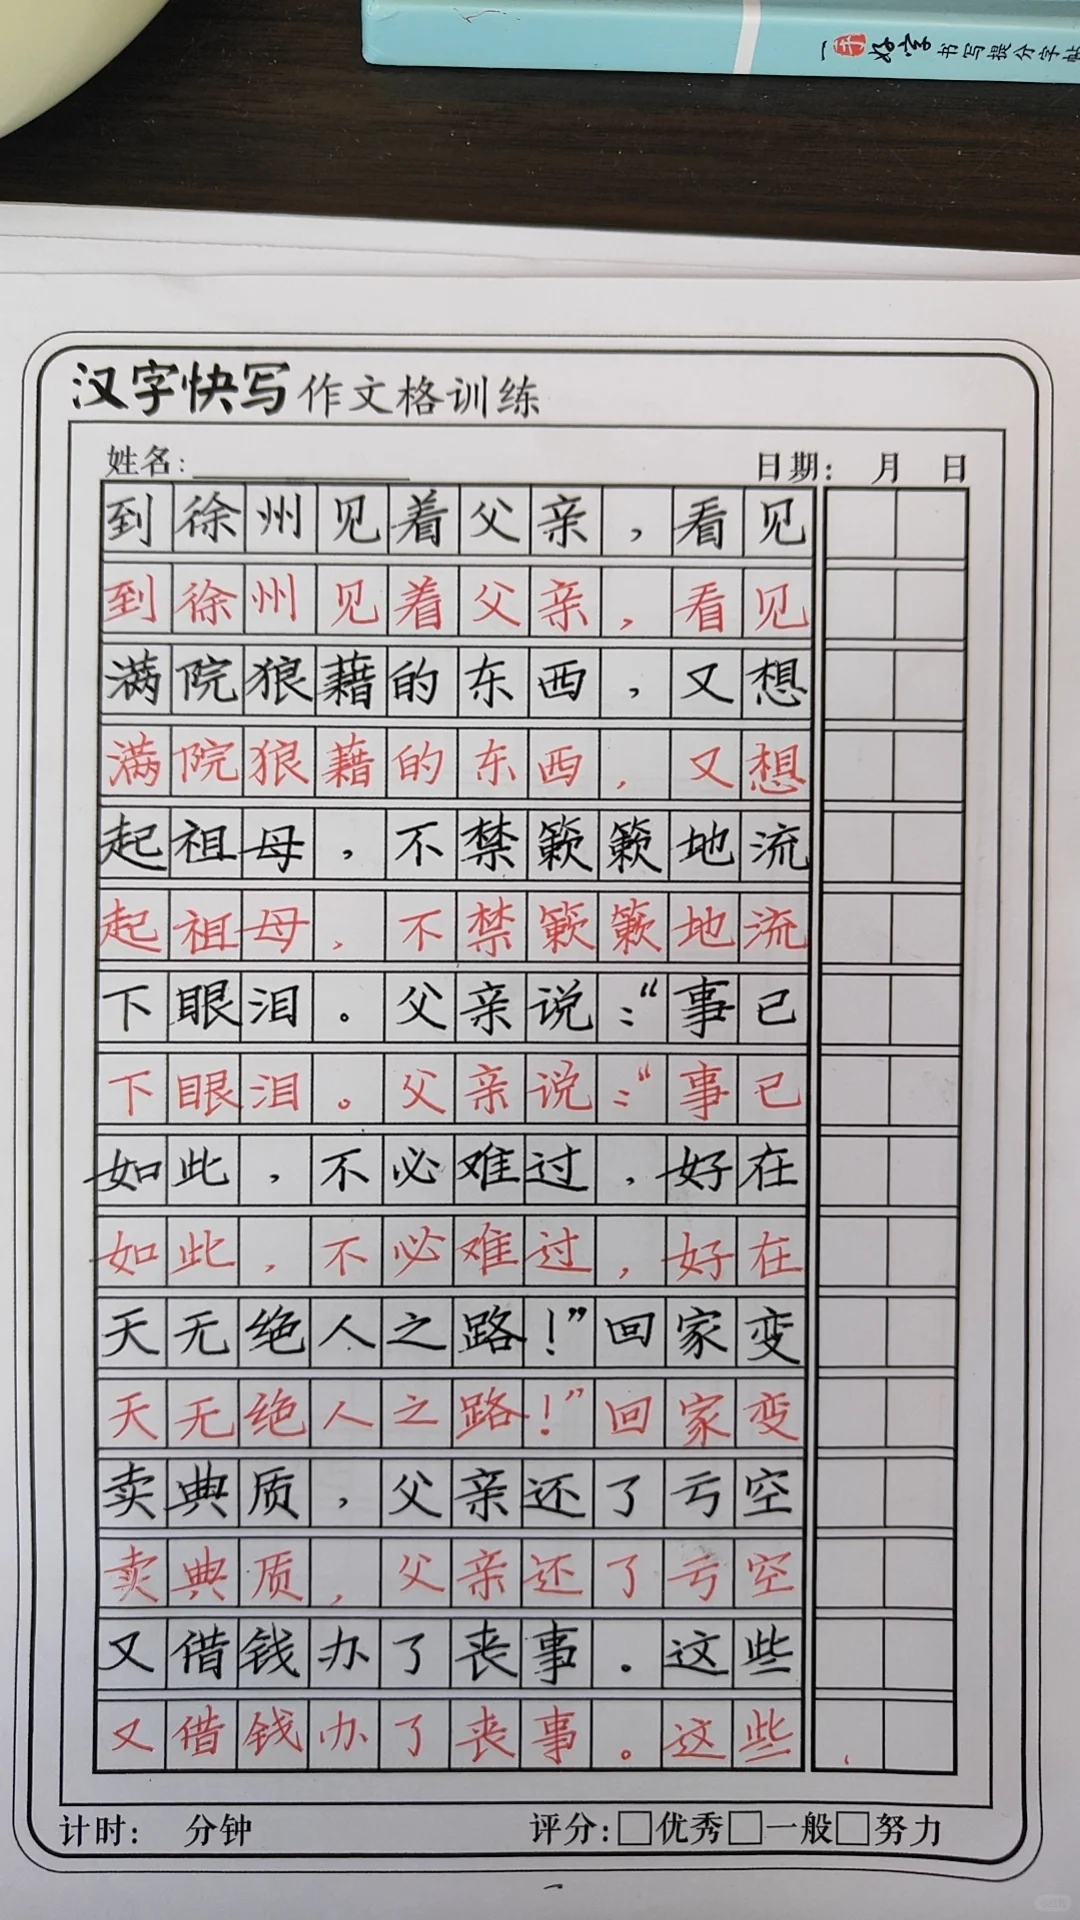 一手好字书写提分字帖
汉字快写作文格训练
姓名： 日期： 月 日
到徐州见着父亲，看见
到徐州见着父亲，看见
满院狼藉的东西，又想
满院狼藉的东西，又想
起祖母，不禁簌簌地流
起祖母，不禁簌簌地流
下眼泪。父亲说：“事已
下眼泪。父亲说：“事已
如此，不必难过，好在
如此，不必难过，好在
天无绝人之路！”回家变
天无绝人之路！”回家变
卖典质，父亲还了亏空
卖典质，父亲还了亏空
又借钱办了丧事。这些
又借钱办了丧事。这些
计时： 分钟 评分：□优秀□一般□努力